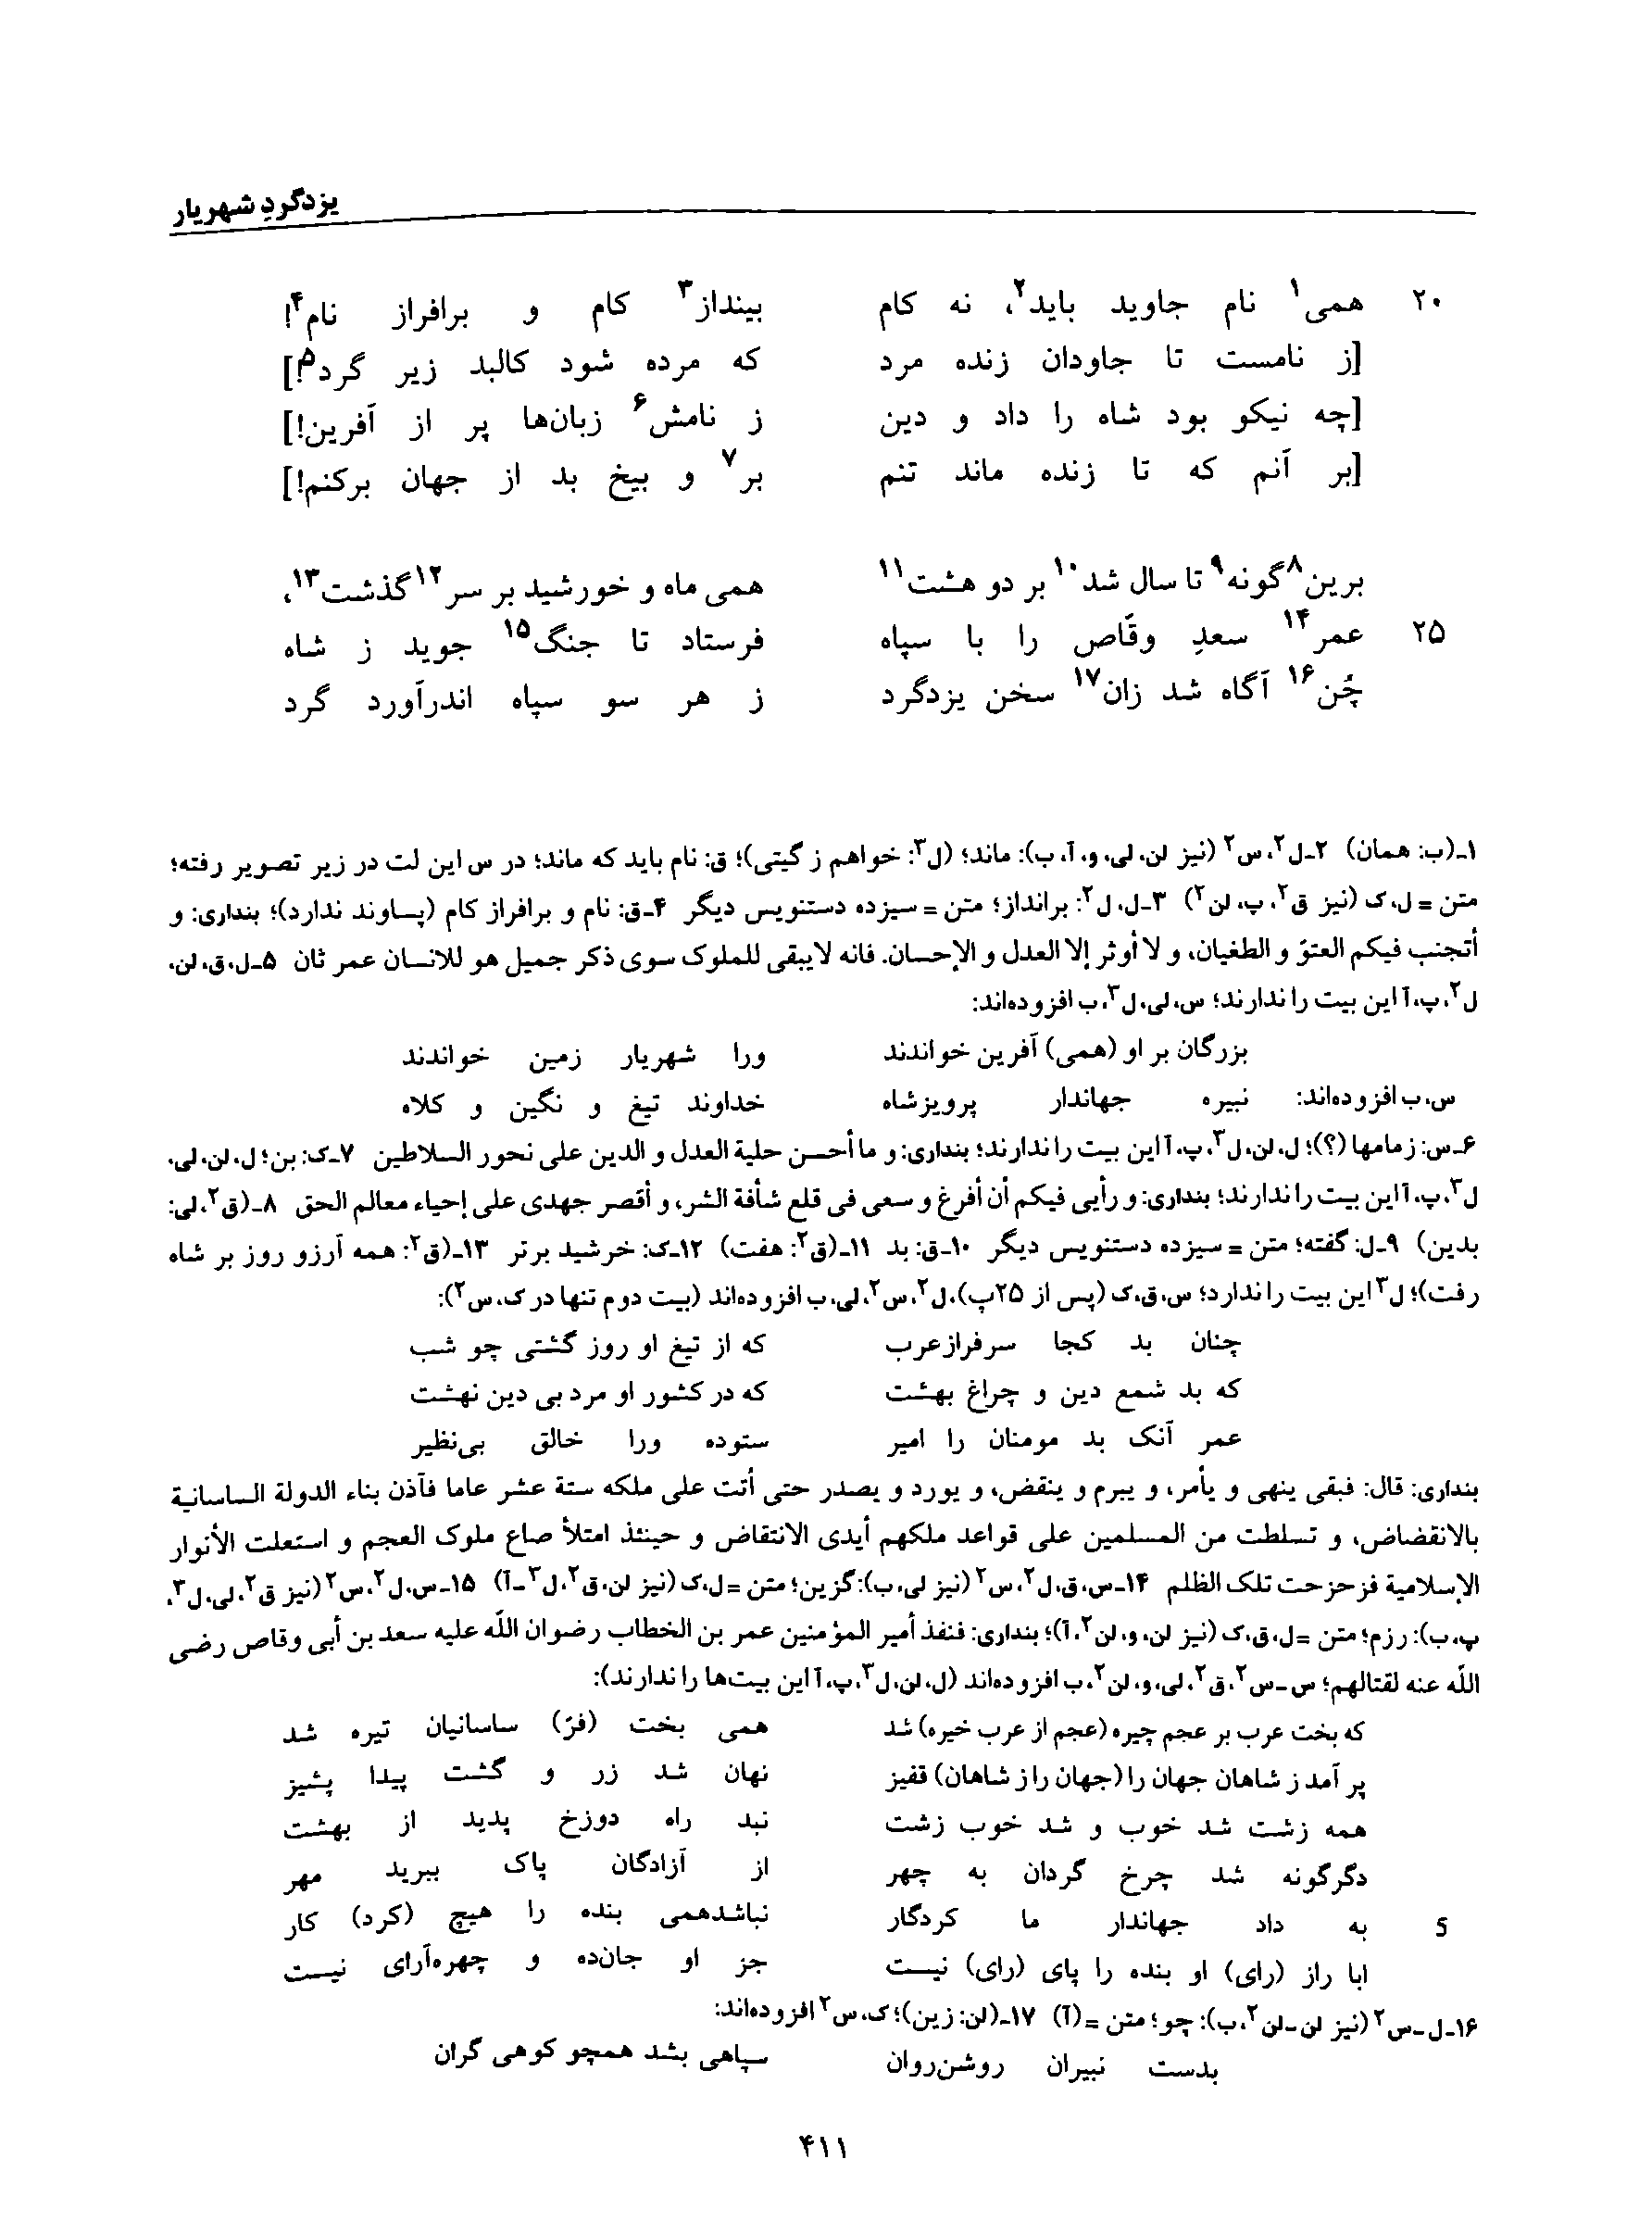 یزدگردِ شهریار
۲۰ همی۱ نام جاوید باید۲، نه کام بینداز۳ کام و برافراز نام۴!
[ز نامست تا جاودان زنده مرد که مرده شود کالبد زیر گرد۵!]
[چه نیکو بود شاه را داد و دین ز نامش۶ زبان‌ها پر از آفرین!]
[بر آنم که تا زنده ماند تنم بر۷ و بیخ بد از جهان برکنم!]
برین۸ گونه۹ تا سال شد۱۰ بر دو هشت۱۱ همی ماه و خورشید بر سر۱۲ گذشت۱۳،
۲۵ عمر۱۴ سعدِ وقّاص را با سپاه فرستاد تا جنگ۱۵ جوید ز شاه
چُن۱۶ آگاه شد زان۱۷ سخن یزدگرد ز هر سو سپاه اندرآورد گرد
۱ـ(ب: همان) ۲ـل۲، س۲ (نیز لن، لی، و، آ، ب): ماند؛ (ل۳: خواهم ز گیتی)؛ ق: نام باید که ماند؛ در س این لت در زیر تصویر رفته؛
متن = ل، ک (نیز ق۲، پ، لن۲) ۳ـل، ل۲: برانداز؛ متن = سیزده دستنویس دیگر ۴ـق: نام و برافراز کام (پساوند ندارد)؛ بنداری: و
أتجنب فیکم العتوّ و الطغیان، و لا أوثر إلا العدل و الإحسان. فانه لایبقی للملوک سوی ذکر جمیل هو للانسان عمر ثان ۵ـل، ق، لن،
ل۲، پ، آ این بیت را ندارند؛ س، لی، ل۳، ب افزوده‌اند:
بزرگان بر او (همی) آفرین خواندند ورا شهریار زمین خواندند
س، ب افزوده‌اند: نبیره جهاندار پرویزشاه خداوند تیغ و نگین و کلاه
۶ـس: زمامها (؟)؛ ل، لن، ل۳، پ، آ این بیت را ندارند؛ بنداری: و ما أحسن حلیة العدل و الدین علی نحور السلاطین ۷ـک: بن؛ ل، لن، لی،
ل۳، پ، آ این بیت را ندارند؛ بنداری: و رأیی فیکم أن أفرغ و سعی فی قلع شأفة الشر، و أقصر جهدی علی إحیاء معالم الحق ۸ـ(ق۲، لی:
بدین) ۹ـل: گفته؛ متن = سیزده دستنویس دیگر ۱۰ـق: بد ۱۱ـ(ق۲: هفت) ۱۲ـک: خرشید برتر ۱۳ـ(ق۲: همه آرزو روز بر شاه
رفت)؛ ل۳ این بیت را ندارد؛ س، ق، ک (پس از ۲۵پ)، ل۲، س۲، لی، ب افزوده‌اند (بیت دوم تنها در ک، س۲):
چنان بد کجا سرفراز عرب که از تیغ او روز گشتی چو شب
که بد شمع دین و چراغ بهشت که در کشور او مرد بی دین نهشت
عمر آنک بد مومنان را امیر ستوده ورا خالق بی‌نظیر
بنداری: قال: فبقی ینهی و یأمر، و یبرم و ینقض، و یورد و یصدر حتی أتت علی ملکه ستة عشر عاما فآذن بناء الدولة الساسانیة
بالانقضاض، و تسلطت من المسلمین علی قواعد ملکهم أیدی الانتقاض و حینئذ امتلأ صاع ملوک العجم و استعلت الأنوار
الإسلامیة فزحزحت تلک الظلم ۱۴ـس، ق، ل۲، س۲ (نیز لی، ب): گزین؛ متن = ل، ک (نیز لن، ق۲، ل۳ـآ) ۱۵ـس، ل۲، س۲ (نیز ق۲، لی، ل۳،
پ، ب): رزم؛ متن = ل، ق، ک (نیز لن، و، لن۲، آ)؛ بنداری: فنفذ أمیر المؤمنین عمر بن الخطاب رضوان اللّه علیه سعد بن أبی وقاص رضی
اللّه عنه لقتالهم؛ س ـ س۲، ق۲، لی، و، لن۲، ب افزوده‌اند (ل، لن، ل۳، پ، آ این بیت‌ها را ندارند):
که بخت عرب بر عجم چیره (عجم از عرب خیره) شد همی بخت (فرّ) ساسانیان تیره شد
پر آمد ز شاهان جهان را (جهان را ز شاهان) قفیز نهان شد زر و گشت پیدا پشیز
همه زشت شد خوب و شد خوب زشت نبد راه دوزخ پدید از بهشت
دگرگونه شد چرخ گردان به چهر از آزادگان پاک ببرید مهر
5 به داد جهاندار ما کردگار نباشدهمی بنده را هیچ (کرد) کار
ابا راز (رای) او بنده را پای (رای) نیست جز او جان‌ده و چهره‌آرای نیست
۱۶ـل ـ س۲ (نیز لن ـ لن۲، ب): چو؛ متن = (آ) ۱۷ـ(لن: زین)؛ ک، س۲ افزوده‌اند:
بدست نبیران روشن‌روان سپاهی بشد همچو کوهی گران
۴۱۱